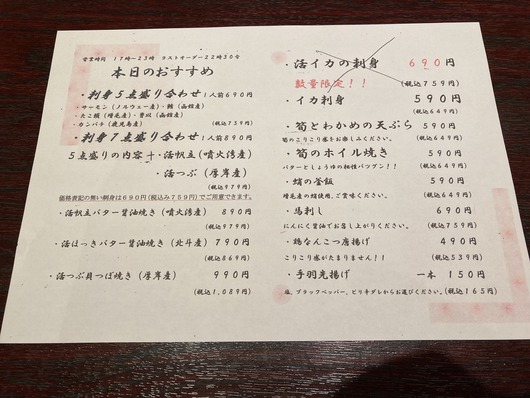 営業時間 17時〜23時 ラストオーダー22時30分
本日のおすすめ
・刺身5点盛り合わせ 1人前690円
・サーモン(ノルウェー産)・鯖(函館産)
・たこ頭(増毛産)・勇払(函館産)
・カンパチ(鹿児島産) (税込759円)
・刺身7点盛り合わせ 1人前890円
5点盛りの内容+・活帆立(噴火湾産)
・活つぶ(厚岸産)
(税込979円)
価格表記の無い刺身は690円(税込み759円)でご用意できます。
・活帆立バター醤油焼き(噴火湾産) 890円
(税込979円)
・活ほっきバター醤油焼き(北斗産) 790円
(税込869円)
・活つぶ貝つぼ焼き(厚岸産) 990円
(税込1,089円)
・活イカの刺身 690円
数量限定!! (税込759円)
・イカ刺身 590円
(税込649円)
・筍とわかめの天ぷら 590円
筍のこりこり感をお楽しみください。 (税込649円)
・筍のホイル焼き 590円
バターとしょうゆの相性バツグン!! (税込649円)
・蛸の釜飯 590円
増毛産の蛸使用、ご賞味ください。 (税込649円)
・馬刺し 690円
にんにく醤油でお召し上がりください。 (税込759円)
・鶏なんこつ唐揚げ 490円
こりこり感がたまりません!! (税込539円)
・手羽先揚げ 一本 150円
塩、ブラックペッパー、ピリ辛ダレからお選びください。 (税込165円)